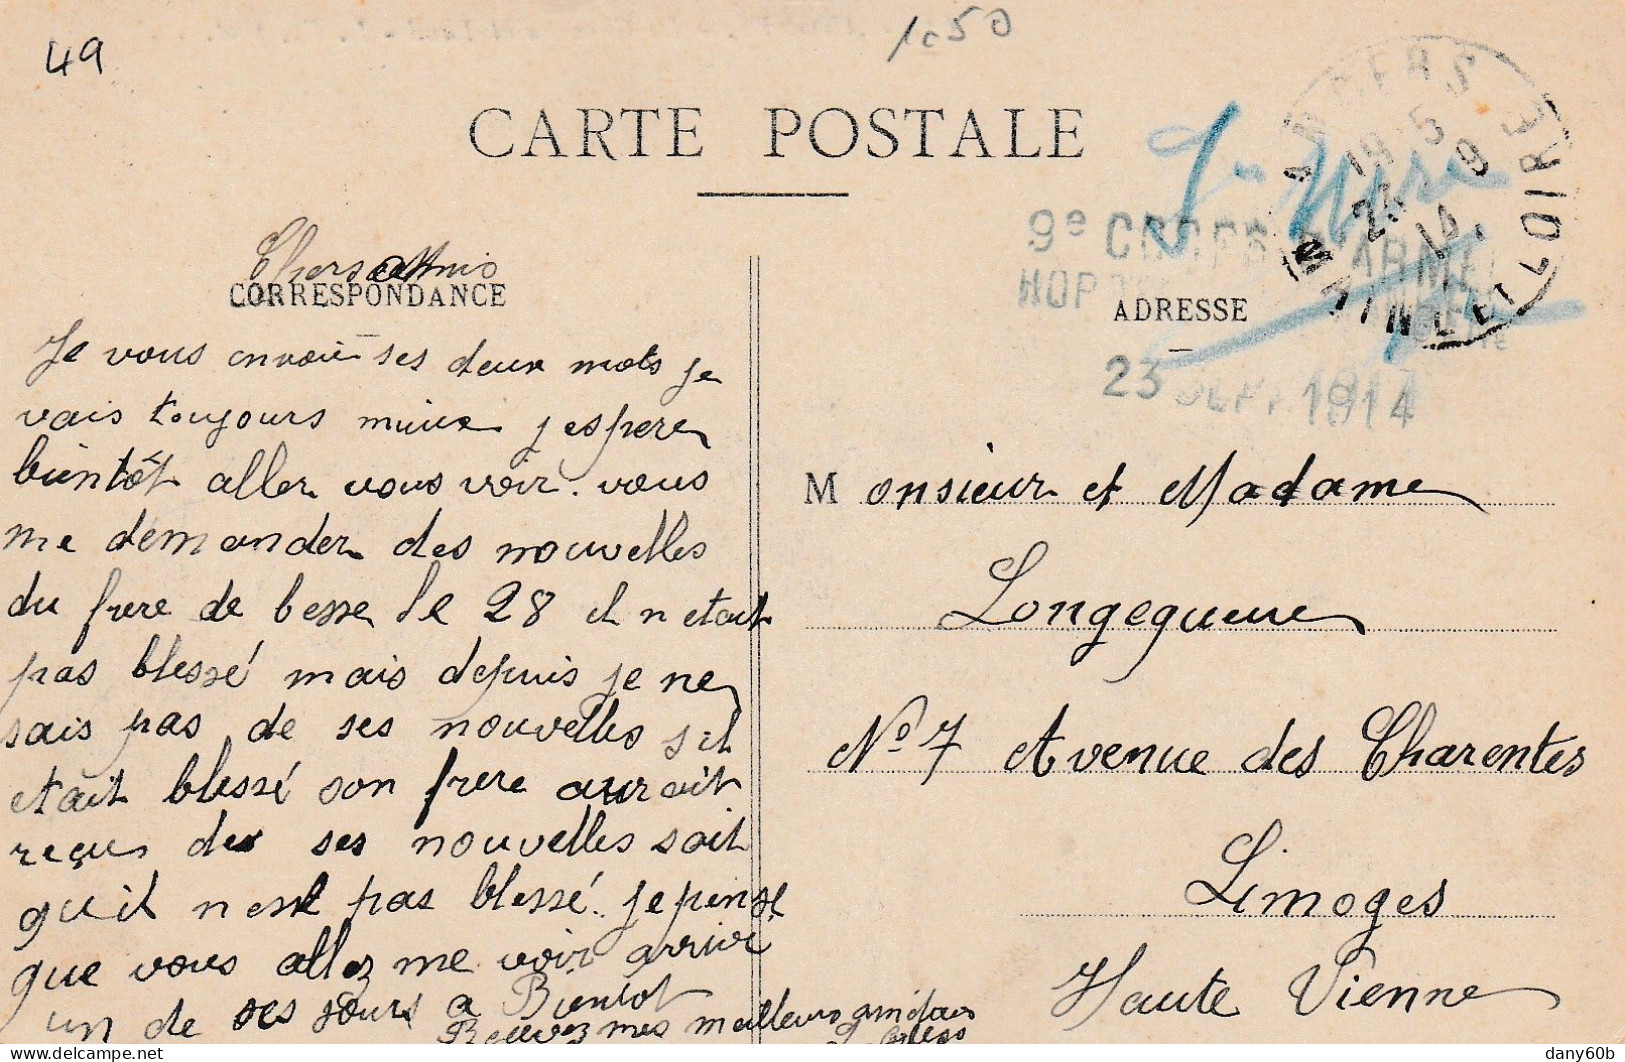 49
1c50
CARTE POSTALE
ANGERS
MAINE ET LOIRE
9e CORPS D'ARMEE
23 SEPT 1914
Chers Amis
CORRESPONDANCE
Je vous envoie ses deux mots je
vais toujours mieux j espere
bientôt aller vous voir. vous
me demander des nouvelles
du frere de besse le 28 il n etait
pas blessé mais depuis je ne
sais pas de ses nouvelles s il
etait blessé son frere aurait
reçu des ses nouvelles soit
qu il n est pas blessé. je pense
que vous allez me voir arriver
un de ses jours a Bientot
Recevez mes meilleurs amitais
ADRESSE
M onsieur et Madame
Longequeue
No 7 Avenue des Charentes
Limoges
Haute Vienne
delcampe.net
dany60b